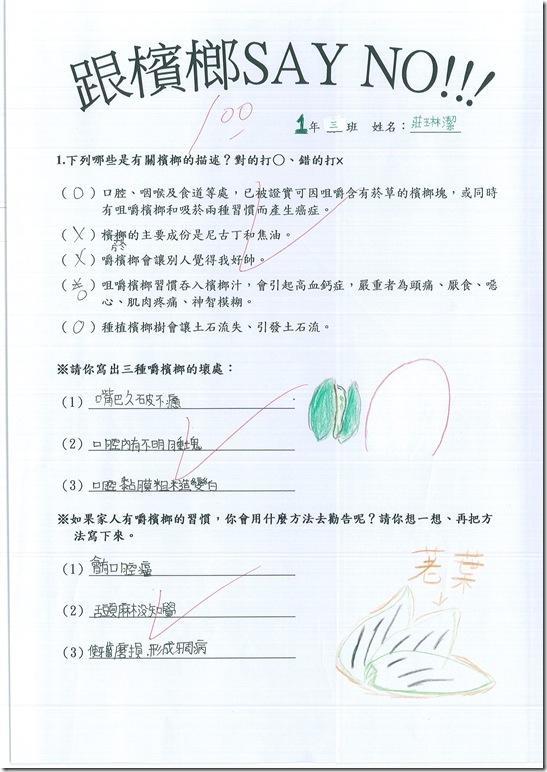 跟檳榔SAY NO!!!
100
1年 三 班 姓名:莊琳潔
1.下列哪些是有關檳榔的描述?對的打○、錯的打×
(O)口腔、咽喉及食道等處,已被證實可因咀嚼含有菸草的檳榔塊,或同時
有咀嚼檳榔和吸菸兩種習慣而產生癌症。
(X)檳榔的主要成份是尼古丁和焦油。
菸
(X)嚼檳榔會讓別人覺得我好帥。
(O)咀嚼檳榔習慣吞入檳榔汁,會引起高血鈣症,嚴重者為頭痛、厭食、噁
心、肌肉疼痛、神智模糊。
(O)種植檳榔樹會讓土石流失、引發土石流。
※請你寫出三種嚼檳榔的壞處:
(1)嘴巴久破不癒
(2)口腔內有不明腫塊
(3)口腔黏膜粗糙變白
※如果家人有嚼檳榔的習慣,你會用什麼方法去勸告呢?請你想一想、再把方
法寫下來。
(1)會有口腔癌
(2)舌頭麻沒知覺
(3)牙齒磨損.形成牙周病
荖葉